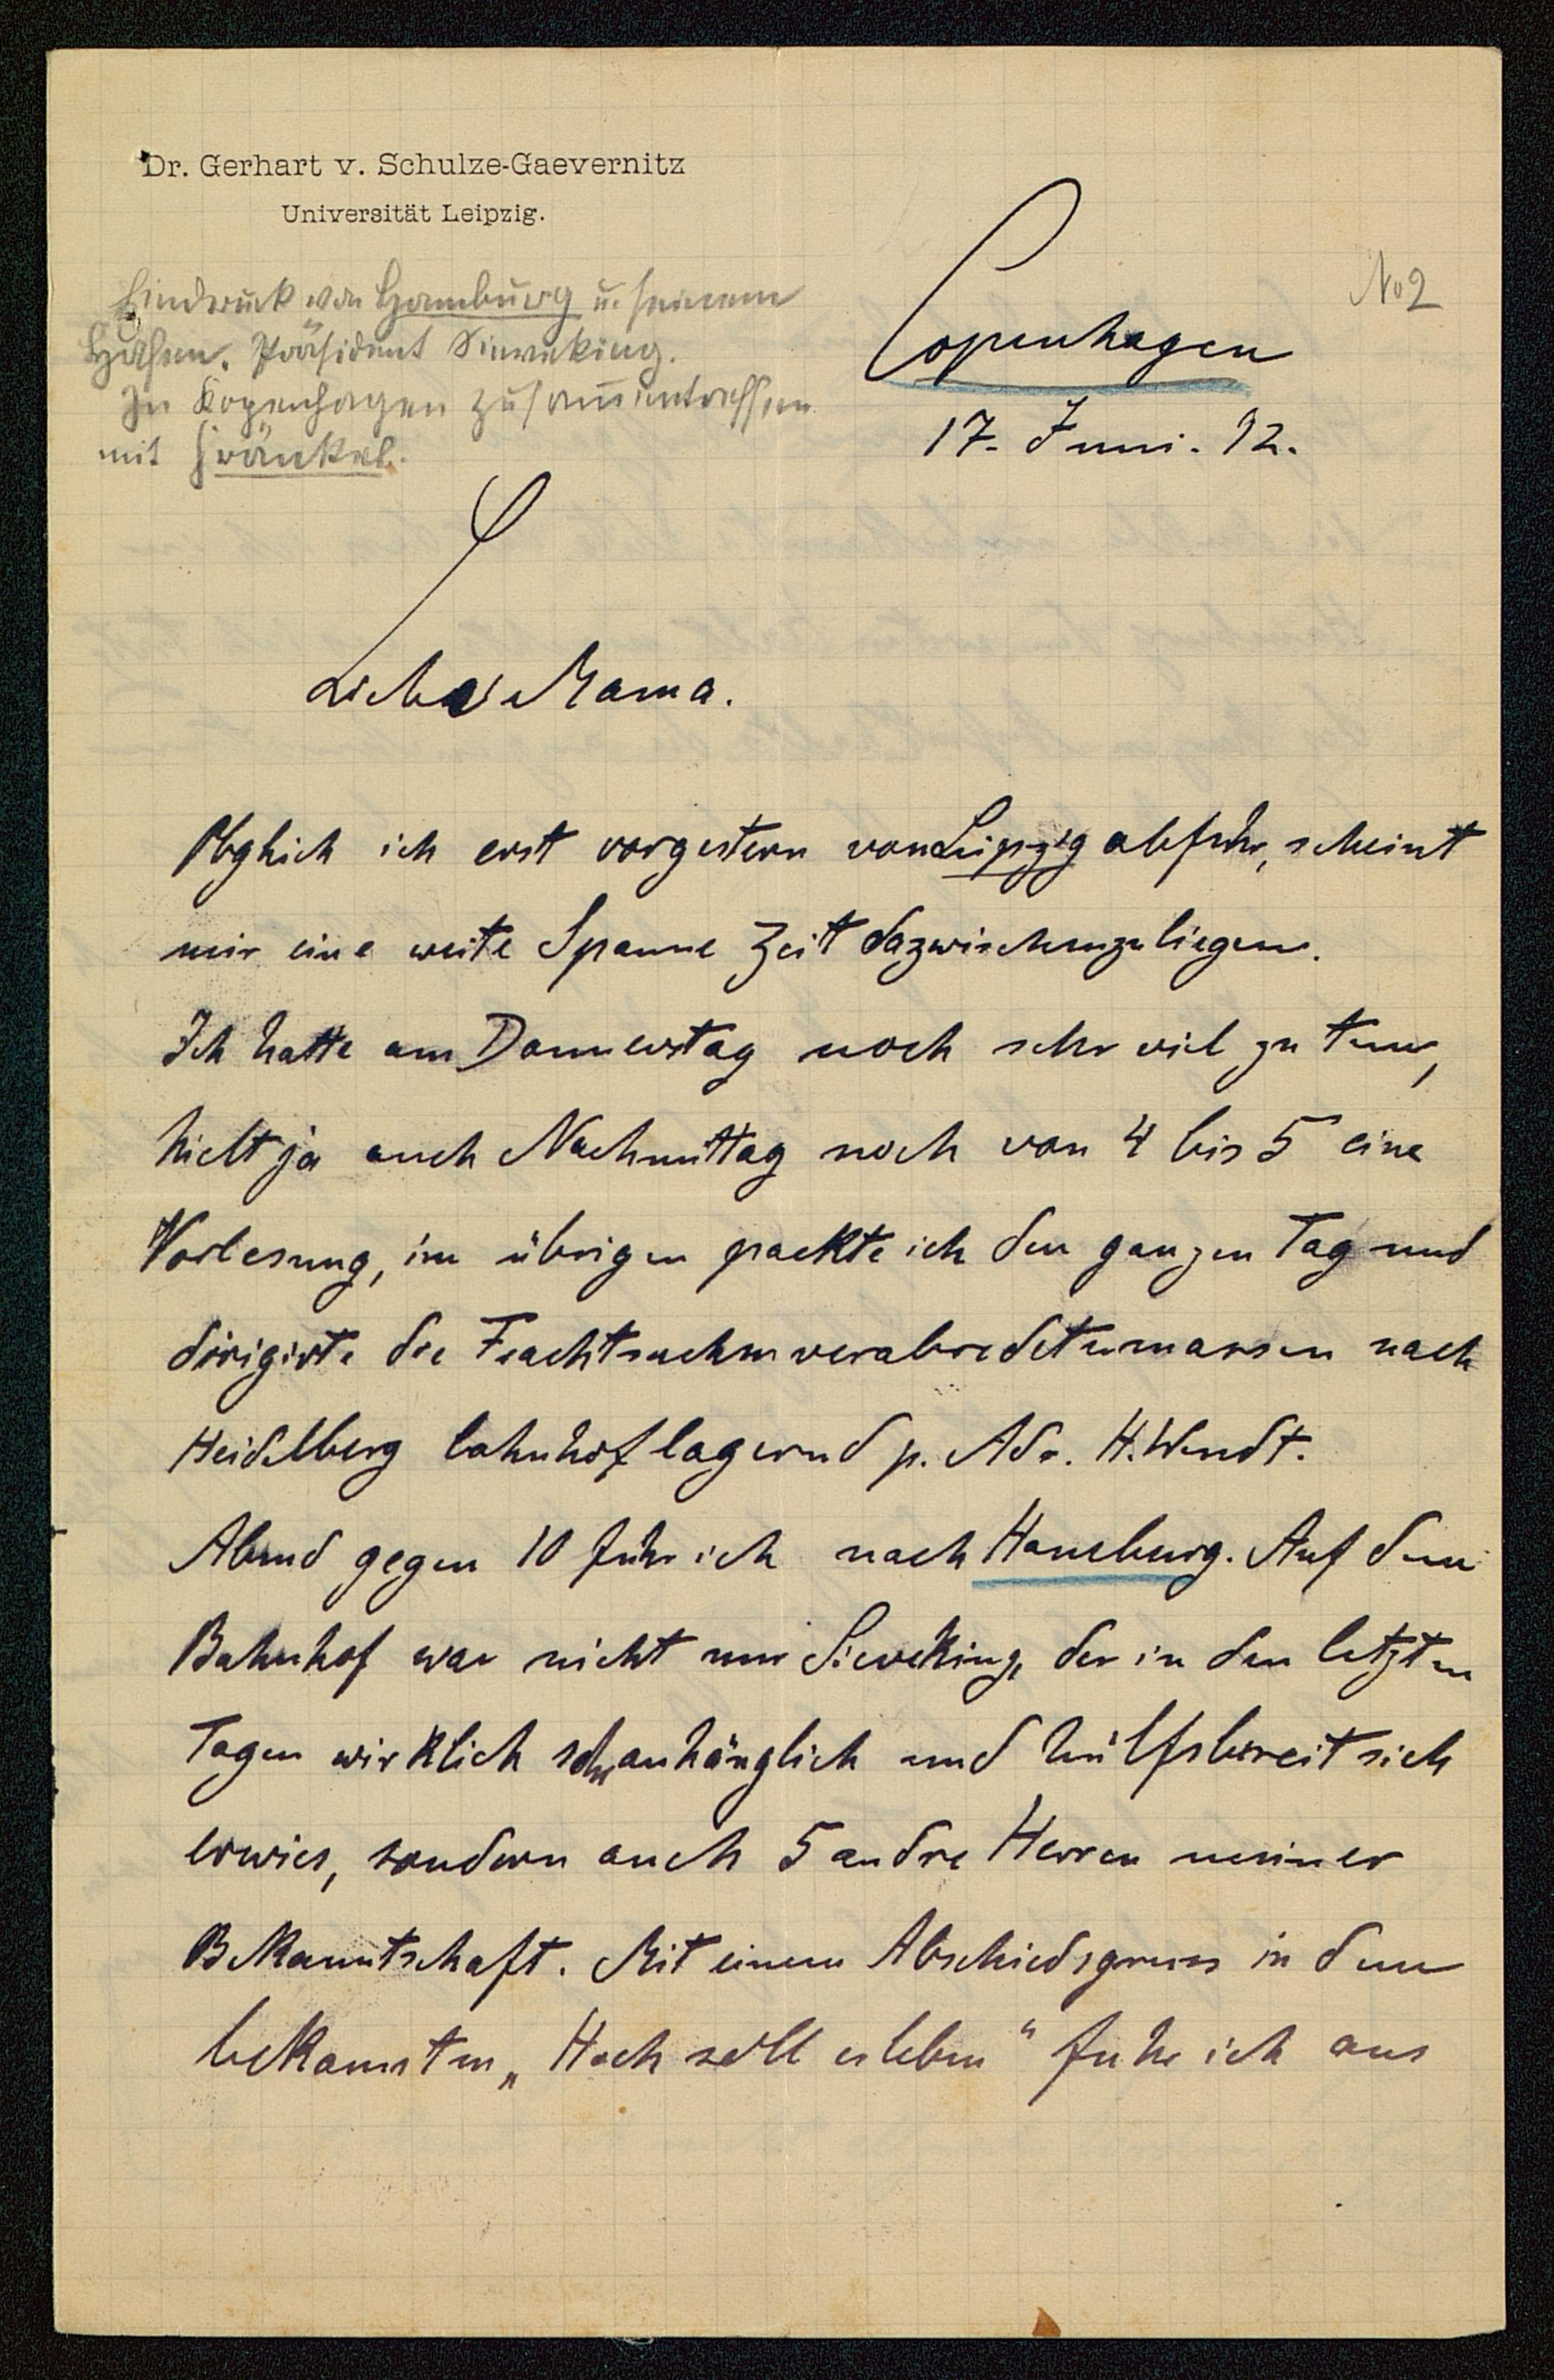 Dr. Gerhart v. Schulze-Gaevernitz
Universität Leipzig.
No 2
Eindruck von Hamburg u. seinem
Hafen. Präsident Sieveking.
In Kopenhagen zusam̅entreffen
mit Fränkel.
Copenhagen
17. Juni. 92.
Liebe Mama.
Obgleich ich erst vorgestern von Leipzig abfuhr, scheint
mir eine weite Spanne Zeit dazwischenzuliegen.
Ich hatte am Donnerstag noch sehr viel zu tun,
hielt ja auch Nachmittag noch von 4 bis 5 eine
Vorlesung, im übrigen packte ich den ganzen Tag und
dirigirte die Frachtsachen verabredetermassen nach
Heidelberg bahnhoflagernd p. Adr. H. Wendt.
Abend gegen 10 fuhr ich nach Hamburg. Auf dem
Bahnhof war nicht nur Sieveking, der in den letzten
Tagen wirklich sehr anhänglich und hülfsbereit sich
erwies, sondern auch 5 andre Herren meiner
Bekanntschaft. Mit einem Abschiedsgruss in dem
bekannten „Hoch soll er leben“ fuhr ich aus